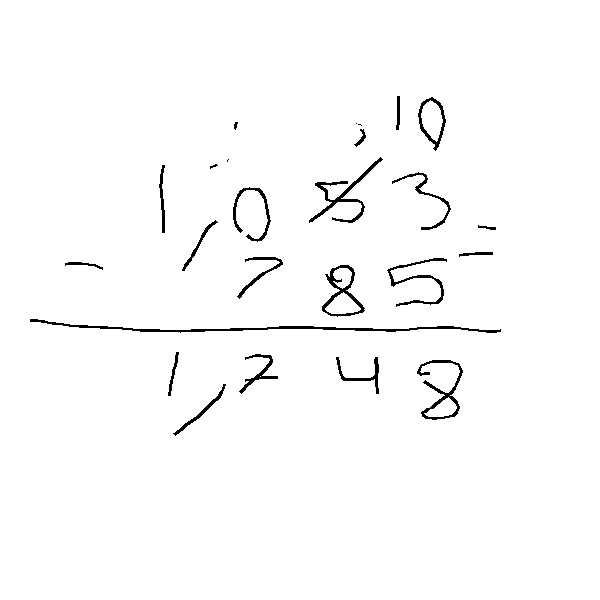 10
1,053
- 785 =
1,748